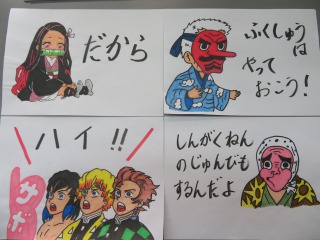 だから
ふくしゅうは
やって
おこう!
ハイ!!
サボ
しんがくねん
のじゅんびも
するんだよ